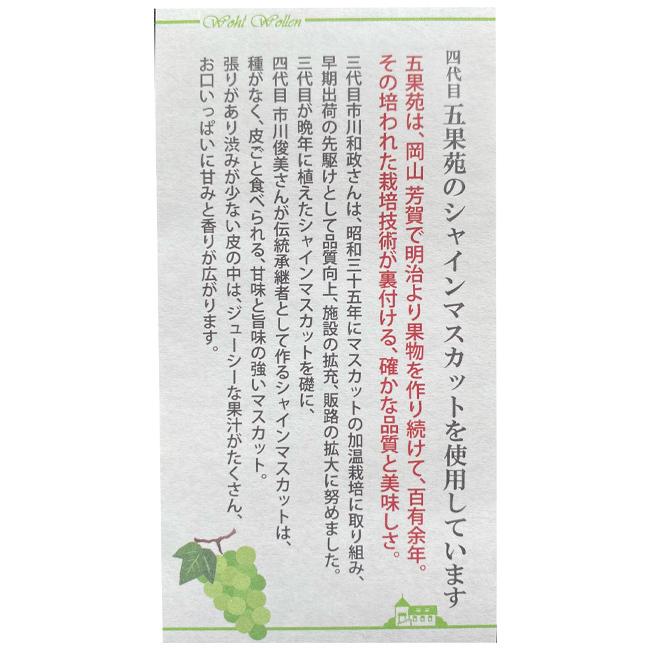 Wohl Wollen
四代目 五果苑のシャインマスカットを使用しています
五果苑は、岡山 芳賀で明治より果物を作り続けて、百有余年。
その培われた栽培技術が裏付ける、確かな品質と美味しさ。
三代目市川和政さんは、昭和三十五年にマスカットの加温栽培に取り組み、
早期出荷の先駆けとして品質向上、施設の拡充、販路の拡大に努めました。
三代目が晩年に植えたシャインマスカットを礎に、
四代目 市川俊美さんが伝統承継者として作るシャインマスカットは、
種がなく、皮ごと食べられる、甘味と旨味の強いマスカット。
張りがあり渋みが少ない皮の中は、ジューシーな果汁がたくさん、
お口いっぱいに甘みと香りが広がります。